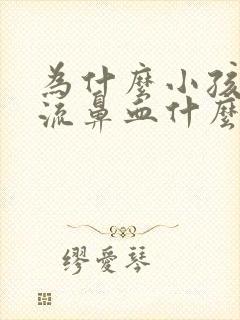 為什麼小孩
流鼻血什麼
繆愛琴